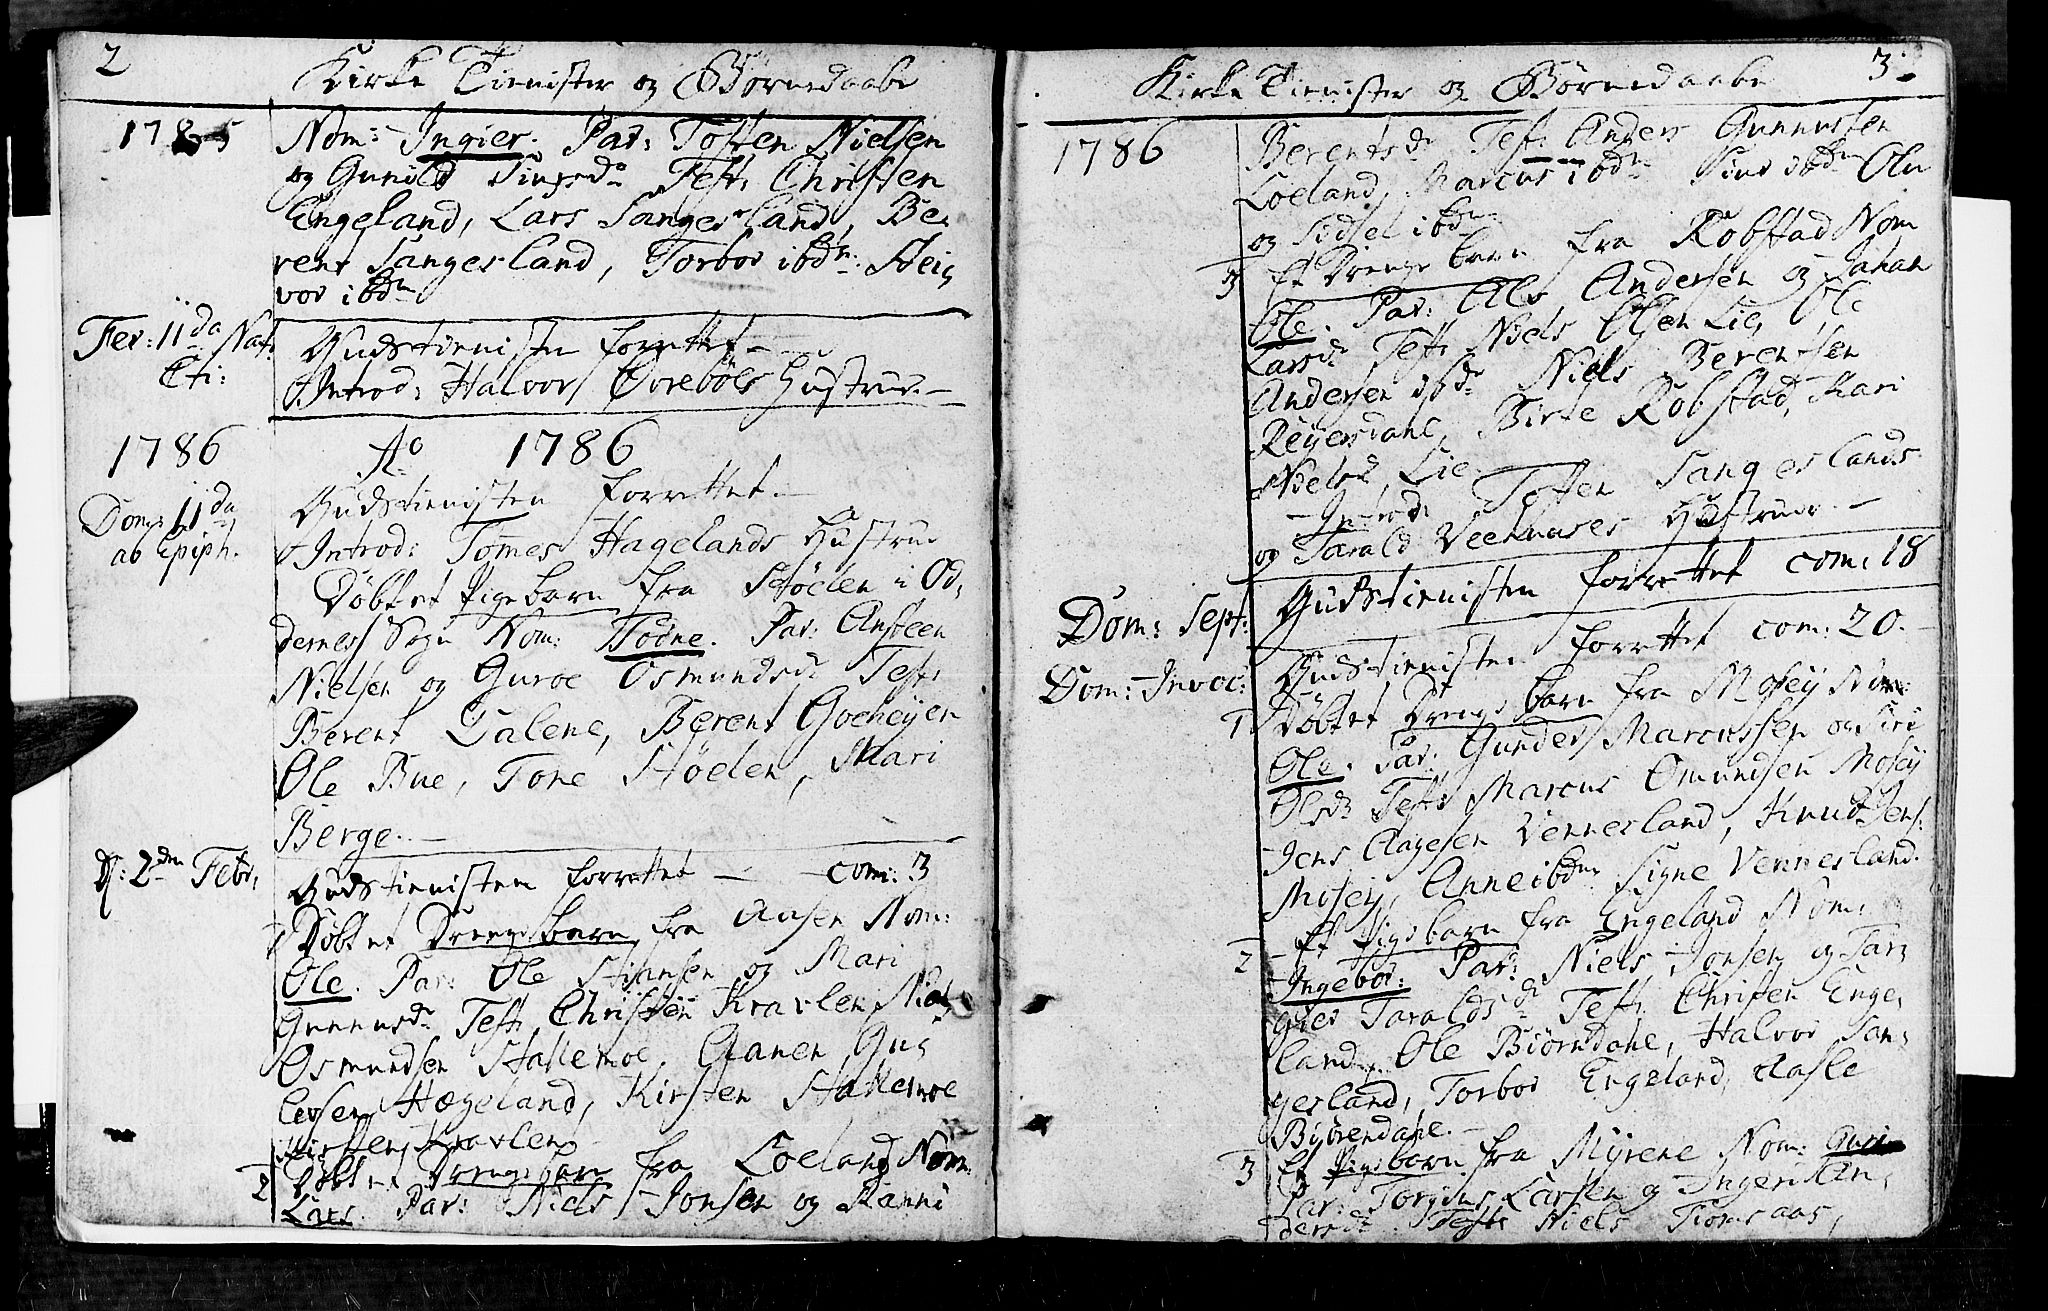 2
Kirke Tienister og Børnedaabe
1785
Nom: Ingier. Par: Tosten Nielsen
og Gunild Test: Christen
Engeland, Lars Sangesland, Be,
rent Sangesland, Torbor ibdm: Hei,
vor ibdm
Fer: IIda Nat.
Cti:
Gudstienisten forrettet
Introd: Halvor Øvrebøes Hustrue.
1786
Ao 1786
Dom: IIda
ab Epiph.
Gudstienisten forrettet.
Introd: Tomes Hagelands Hustrue
Døbt et Pigebarn fra Støelen i Od,
dernes Sogn Nom: Todne. Par: Ansteen
Nielsen og Guroe Osmundsdr Test:
Berent Dalene, Berent Gocheyen
Ole Bue, Tone Støelen, Mari
Berge.
D: 2den Febr,
Gudstienisten forrettet com: 3
1 Døbt et Drengebarn fra Aasen Nom:
Ole. Par: Ole Stiansen og Mari
Gunnusdr Test: Christen Kravlen, Niels
Osmundsen Stallemoe, Aanen Gun,
lersen Hægeland, Kirsten Stallemoe
Kirsten Kravlen
2 Døbt et Drengebarn fra Loeland Nom:
Lars. Par: Niels Jonsen og Ranni
3
Kirke Tienister og Børnedaabe
1786
Berentsdr Test: Anders Gunnusen
Loeland, Marcus ibdm Siur ibdm Ole
og Sidsel ibdm
3 Et Drengebarn fra Robstad Nom
Ole. Par: Alv Andersen og Johan
Larsdr, Test: Niels Olsen Lie, Ole
Andersen ibdm Niels Berentsen
Reyersdahl, Birte Robstad, Mari
Nielsd. Lie.
Introd: Tosten Sangeslands
og Tarald Veehuses Hustruer.
Dom: Sept:
Gudstienisten forrettet com: 18
Dom: Invoc:
Gudstienisten forrettet com: 20.
1 Døbt et Drengebarn fra Mosey Nom:
Ole. Par: Gunder Marcussen og Siri
Olsdr Test: Marcus Omundsen Mosey
Jens Aagesen Vennesland, Knud Jens:
Mosey, Anne ibdm Signe Vennesland.
2 Et Pigebarn fra Engeland Nom:
Ingebor: Par: Niels Jonsen og Tar,
gier Taraldsdr Test: Christen Enge,
land, Ole Biørndahl, Halvor San,
gesland, Torbor Engeland, Aasle
Biørendahl.
3 Et Pigebarn fra Myrene Nom: Guri
Par: Torgius Larsen og Ingeri An,
dersdr Test: Niels Tiomsaas,